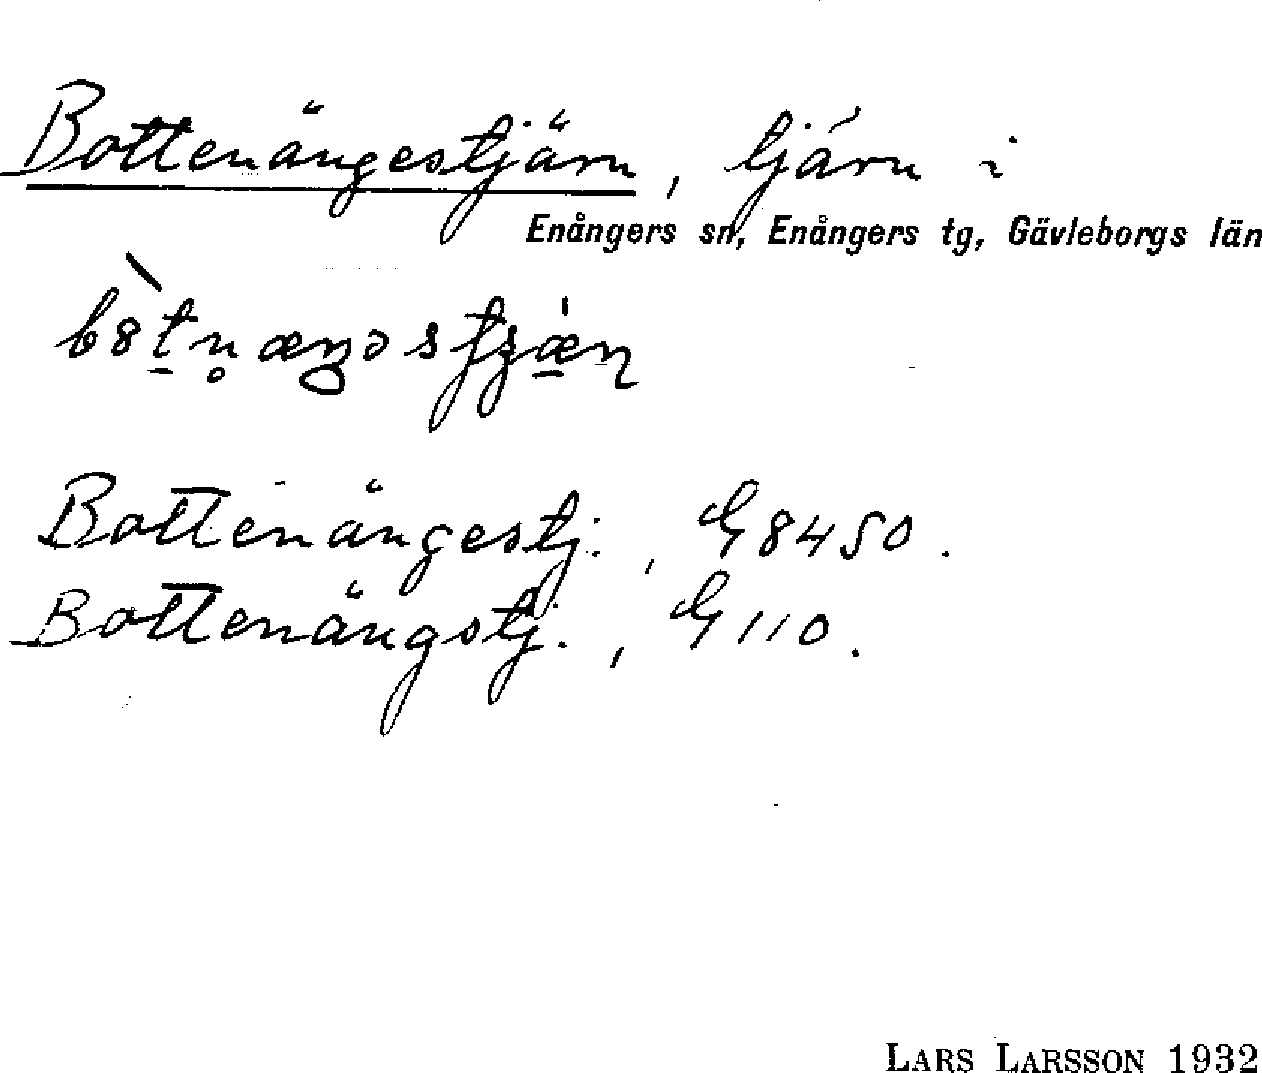 Bottenängestjärn, tjärn i
Enångers sn, Enångers tg, Gävleborgs län
Bottenängestj., G 8450.
Bottenängstj., G 110.
LARS LARSSON 1932